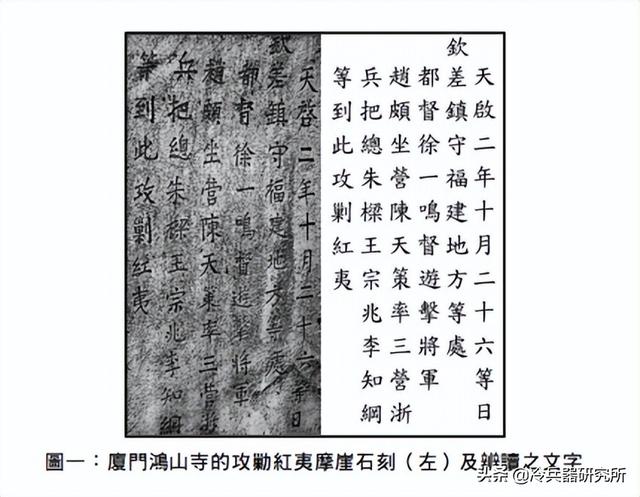 天啓二年十月二十六等日
欽差鎮守福建地方等處
都督徐一鳴督遊擊將軍
趙頗坐營陳天策率三營浙
兵把總朱樑王宗兆李知綱
等到此攻剿紅夷
天啟二年十月二十六等日
欽差鎮守福建地方等處
都督徐一鳴督遊擊將軍
趙頗坐營陳天策率三營浙
兵把總朱樑王宗兆李知綱
等到此攻剿紅夷
圖一：廈門鴻山寺的攻勦紅夷摩崖石刻（左）及辨讀之文字
头条 @冷兵器研究所